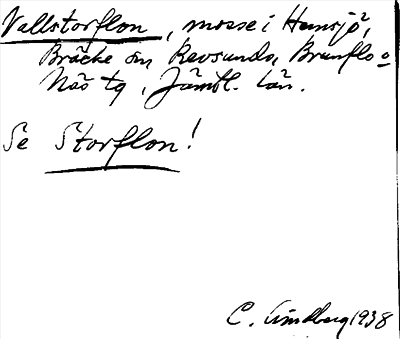 Vallstorflon, mosse i Hemsjö,
Bräcke sn Revsunds, Brunflo o
Näs tg, Jämtl. län.
Se Storflon!
C. Lindberg 1938